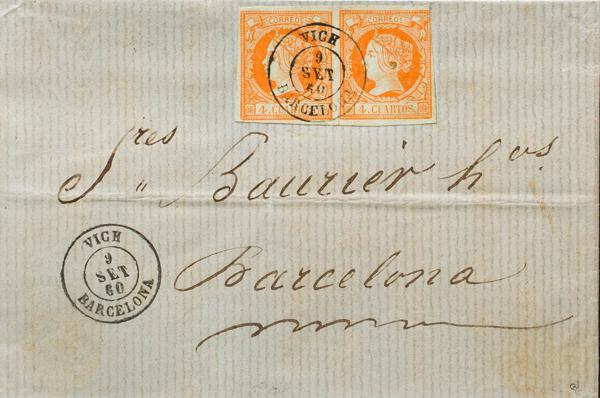 CORREOS CORREOS
4. CUARTOS. 4. CUARTOS.
VICH
9
SET
60
BARCELONA
Sres Baurier hos
Barcelona
VICH
9
SET
60
BARCELONA